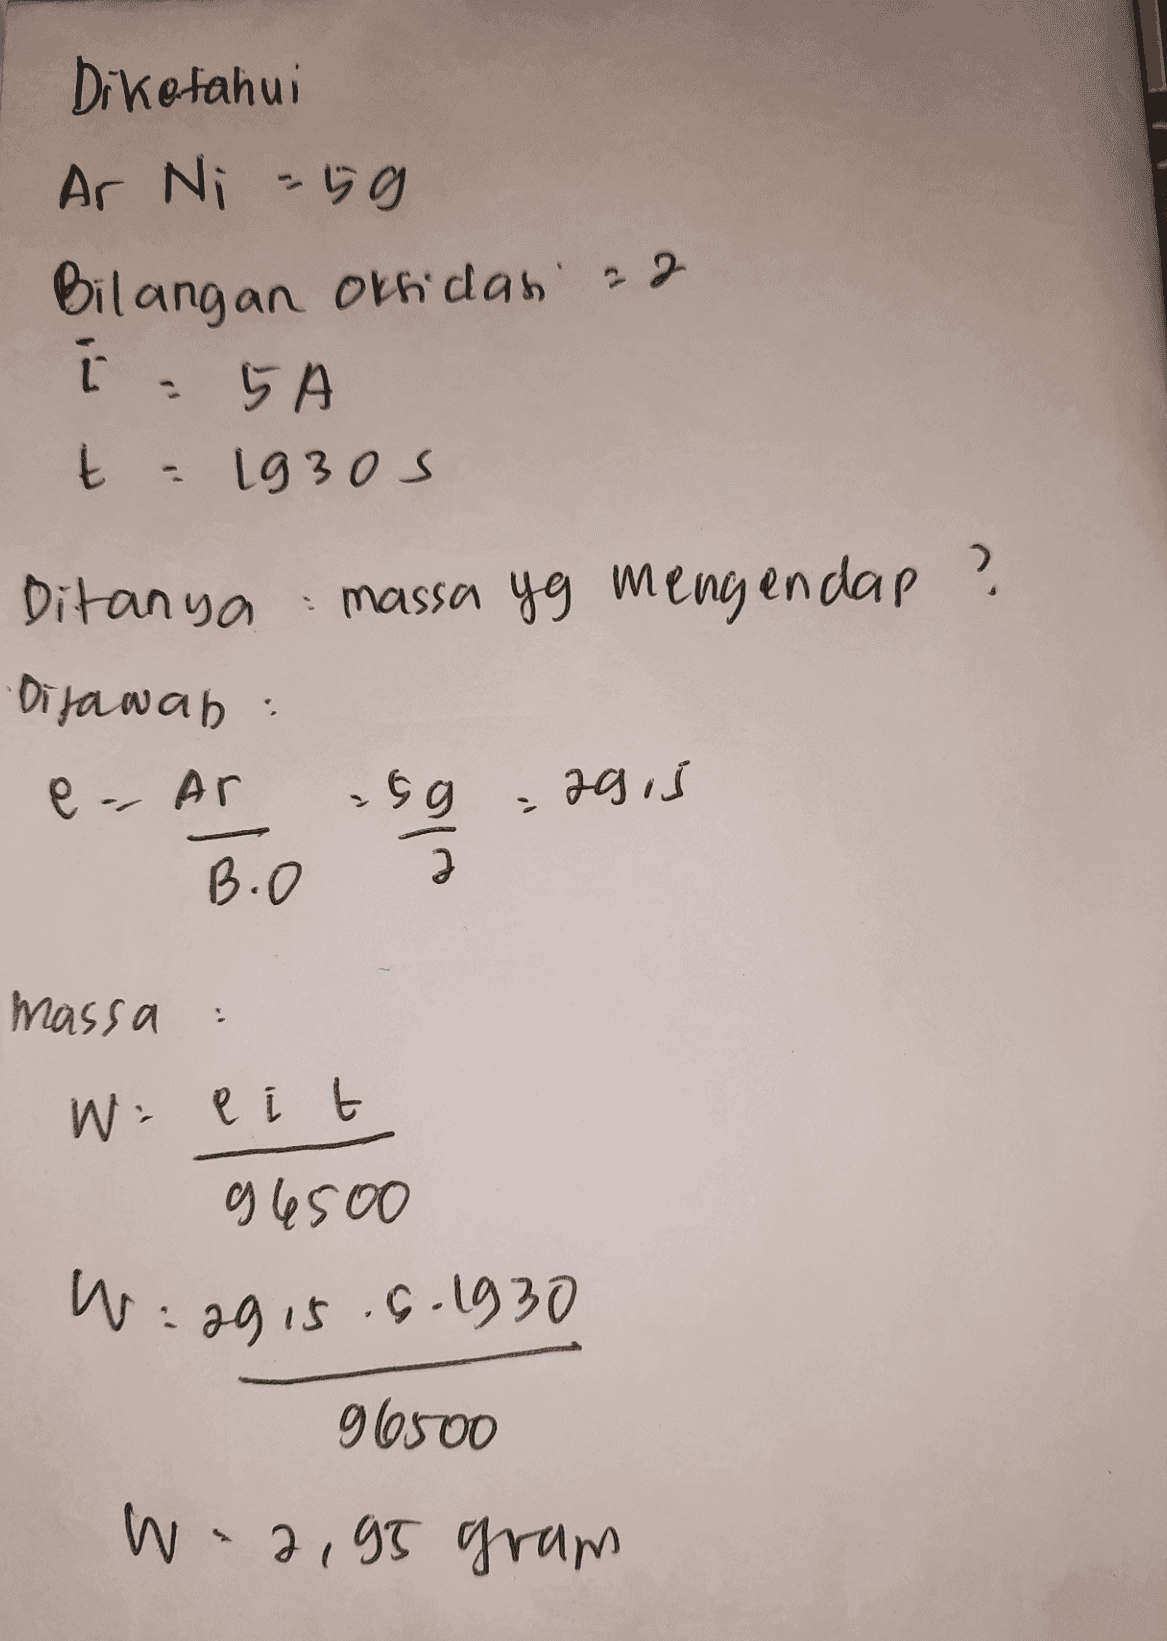 Diketahui
Ar Ni = 59
Bilangan oksidasi = 2
i = 5 A
t = 1930 s
Ditanya : massa yg mengendap ?
Dijawab :
e = Ar = 59 = 29,5
B.O 2
Massa :
W = e i t
96500
W = 29,5 . 5 . 1930
96500
W = 2,95 gram